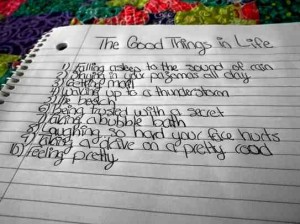 The Good Things in Life
1) falling asleep to the sound of rain
2) staying in your pajamas all day
3) getting mail
4) waking up to a thunderstorm
5) the beach
6) being trusted with a secret
7) taking a bubble bath
8) laughing so hard your face hurts
9) taking a drive on a pretty road
10) feeling pretty